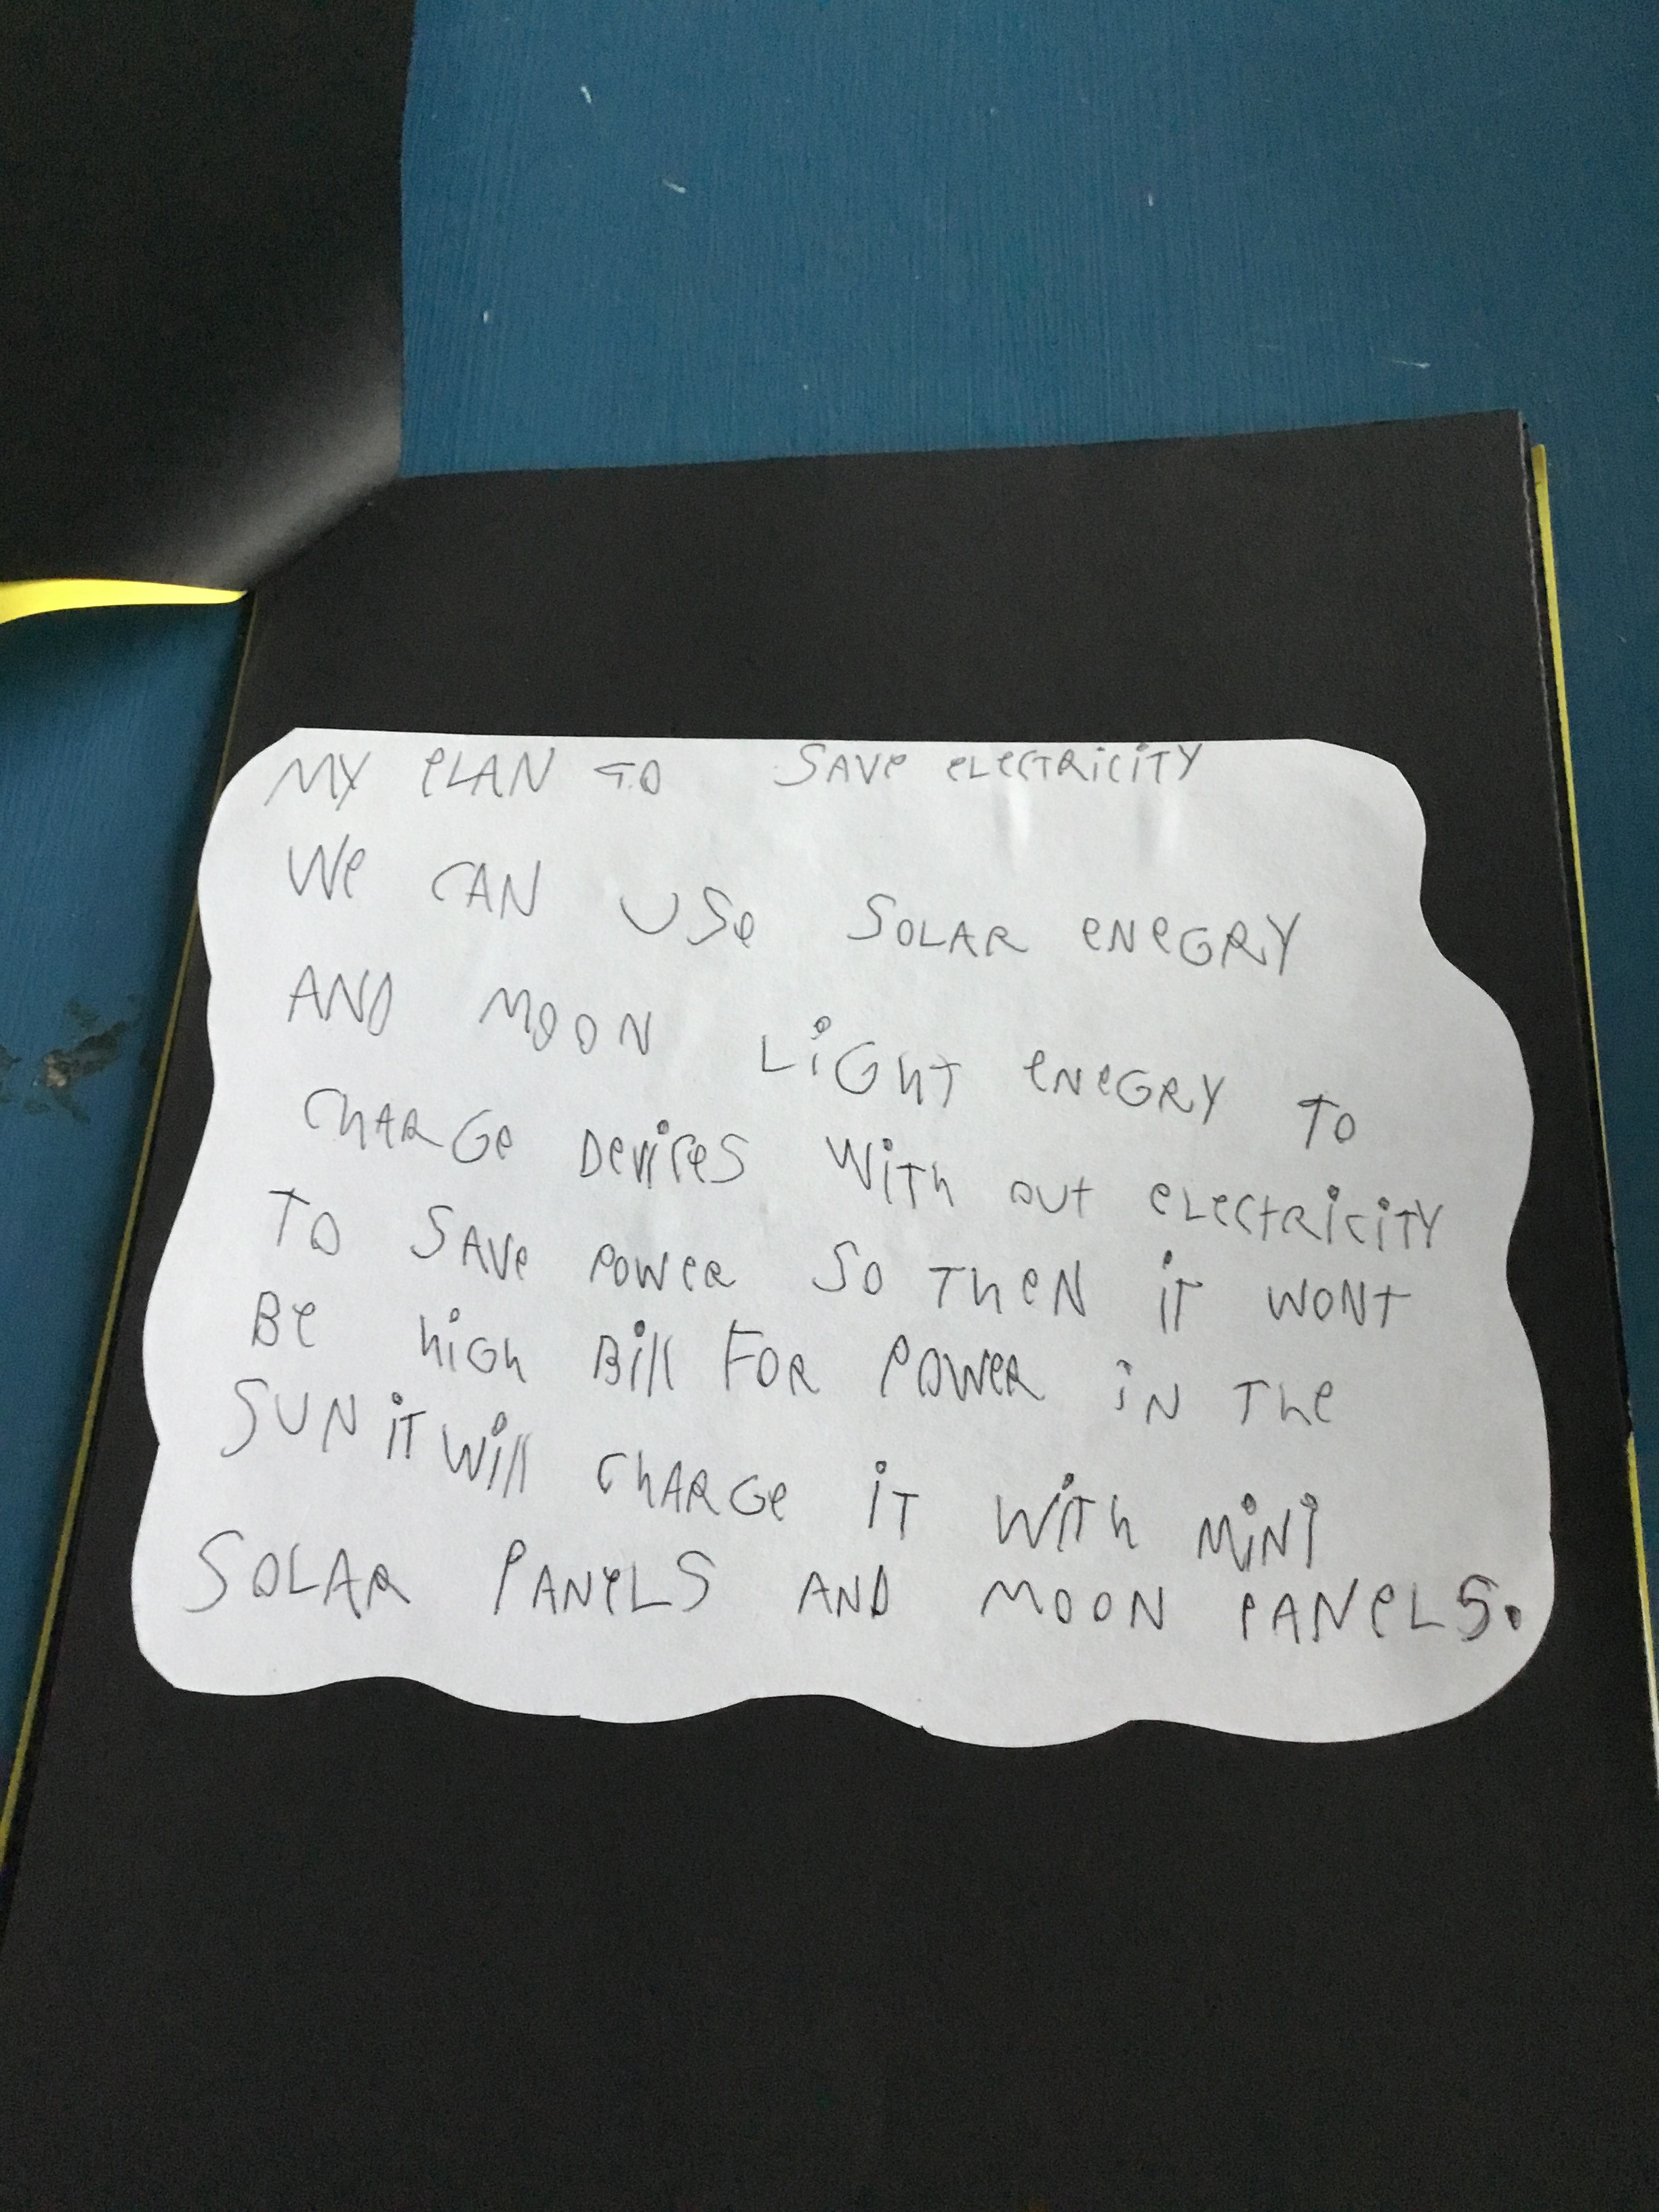 MY PLAN TO SAVE ELECTRICITY
WE CAN USE SOLAR ENEGRY
AND MOON LIGHT ENEGRY TO
CHARGE DEVICES WITH OUT ELECTRICITY
TO SAVE POWER SO THEN IT WONT
BE HIGH BILL FOR POWER IN THE
SUN IT WILL CHARGE IT WITH MINI
SOLAR PANELS AND MOON PANELS.